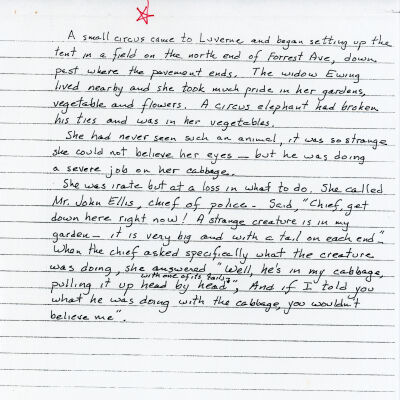 A small circus came to Luverne and began setting up the
tent in a field on the north end of Forrest Ave, down
past where the pavement ends. The widow Ewing
lived nearby and she took much pride in her gardens,
vegetable and flowers. A circus elephant had broken
his ties and was in her vegetables.
She had never seen such an animal, it was so strange
she could not believe her eyes — but he was doing
a severe job on her cabbage.
She was irate but at a loss in what to do. She called
Mr. John Ellis, chief of police. Said, "Chief, get
down here right now! A strange creature is in my
garden — it is very big and with a tail on each end".
When the chief asked specifically what the creature
was doing, she answered "Well, he's in my cabbage,
with one of its tails
pulling it up head by head", And if I told you
what he was doing with the cabbage, you wouldn't
believe me".